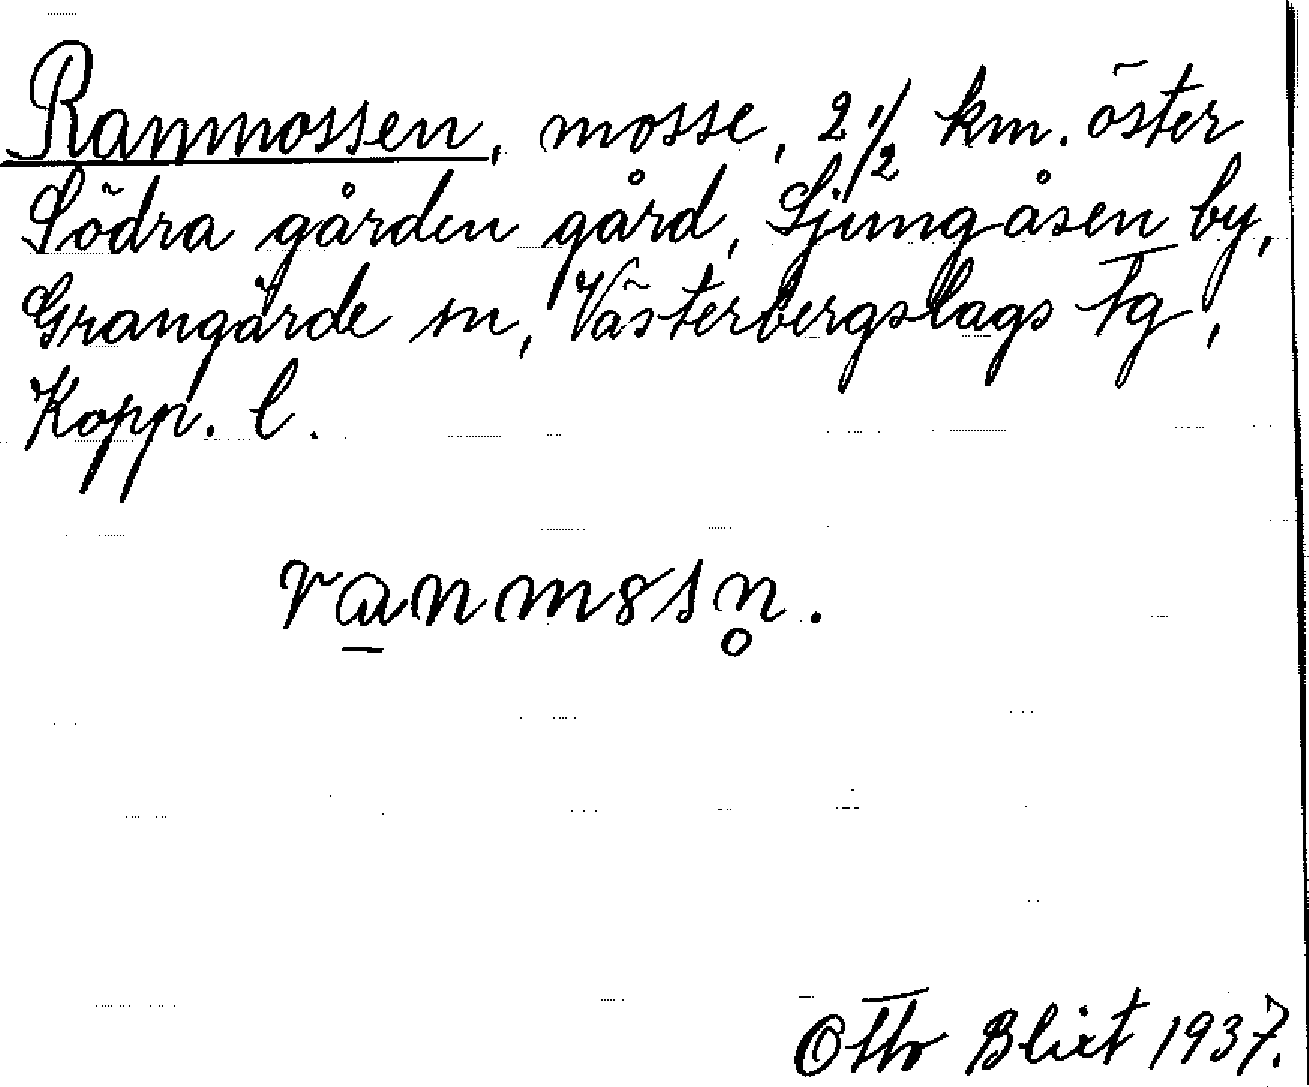 Ranmossen, mosse, 2 1/2 km. öster
Södra gården gård, Ljungåsen by,
Grangärde sn, Västerbergslags Fg,
Kopp. l.
ra̲nm8sn̥.
Otto Blixt 1937.